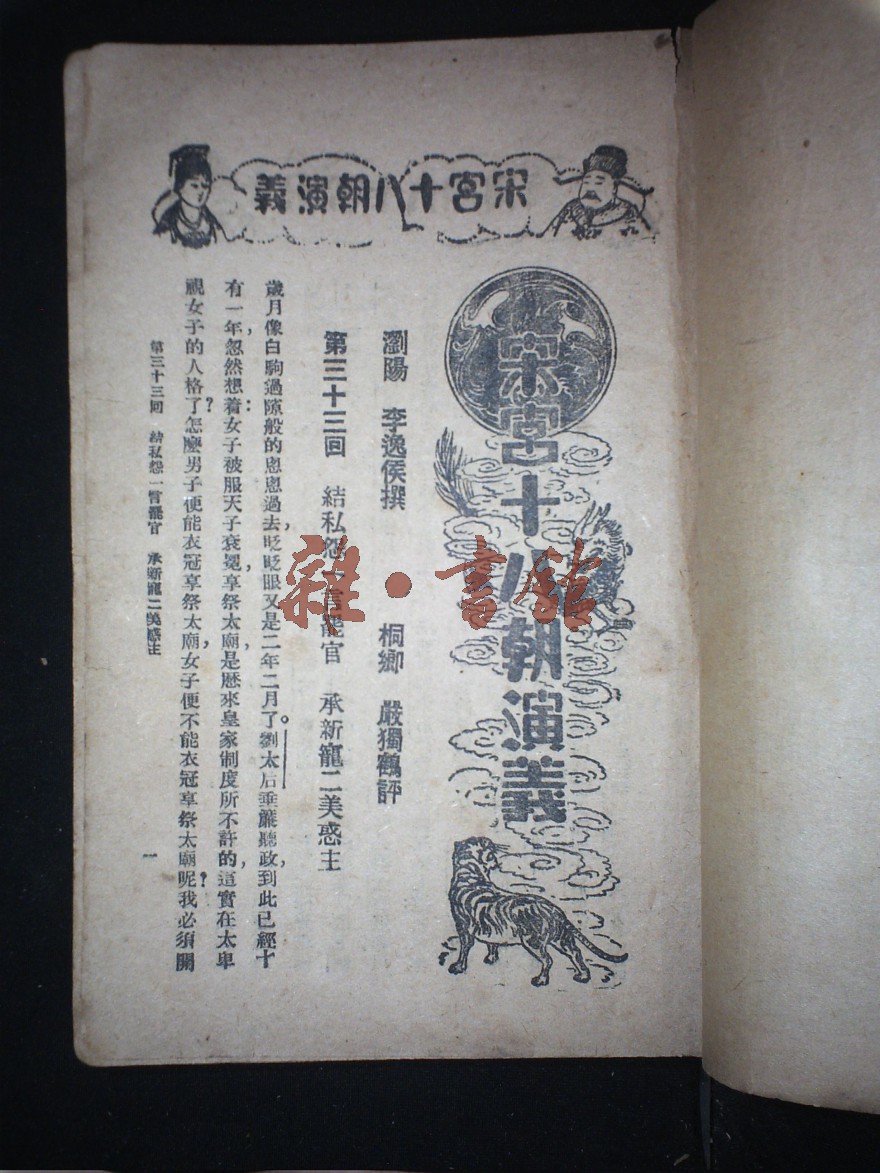 宋宮十八朝演義
宋宮十八朝演義
瀏陽　李逸侯撰　桐鄉　嚴獨鶴評
第三十三回　結私怨一言罷官　承新寵二美惑主
歲月像白駒過隙般的悤悤過去，眨眨眼又是二年二月了。劉太后垂簾聽政，到此已經十
有一年，忽然想着：女子被服天子袞冕，享祭太廟，是歷來皇家制度所不許的，這實在太卑
視女子的人格了？怎麼男子便能衣冠享祭太廟，女子便不能衣冠享祭太廟呢？我必須開
第三十三回　結私怨一言罷官　承新寵二美惑主
一
雜·書館